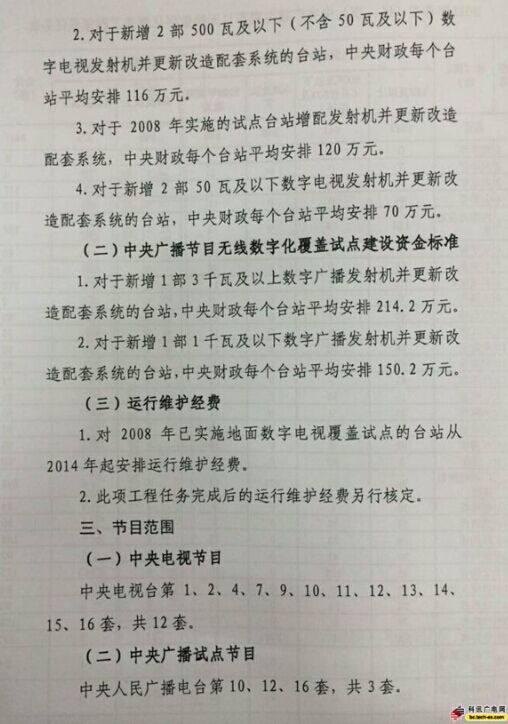 2.对于新增2部500瓦及以下（不含50瓦及以下）数
字电视发射机并更新改造配套系统的台站，中央财政每个台
站平均安排116万元。
3.对于2008年实施的试点台站增配发射机并更新改造
配套系统，中央财政每个台站平均安排120万元。
4.对于新增2部50瓦及以下数字电视发射机并更新改
造配套系统的台站，中央财政每个台站平均安排70万元。
（二）中央广播节目无线数字化覆盖试点建设资金标准
1.对于新增1部3千瓦及以上数字广播发射机并更新改
造配套系统的台站，中央财政每个台站平均安排214.2万元。
2.对于新增1部1千瓦及以下数字广播发射机并更新改
造配套系统的台站，中央财政每个台站平均安排150.2万元。
（三）运行维护经费
1.对2008年已实施地面数字电视覆盖试点的台站从
2014年起安排运行维护经费。
2.此项工程任务完成后的运行维护经费另行核定。
三、节目范围
（一）中央电视节目
中央电视台第1、2、4、7、9、10、11、12、13、14、
15、16套，共12套。
（二）中央广播试点节目
中央人民广播电台第10、12、16套，共3套。
科讯广电网
bc.tech-ex.com